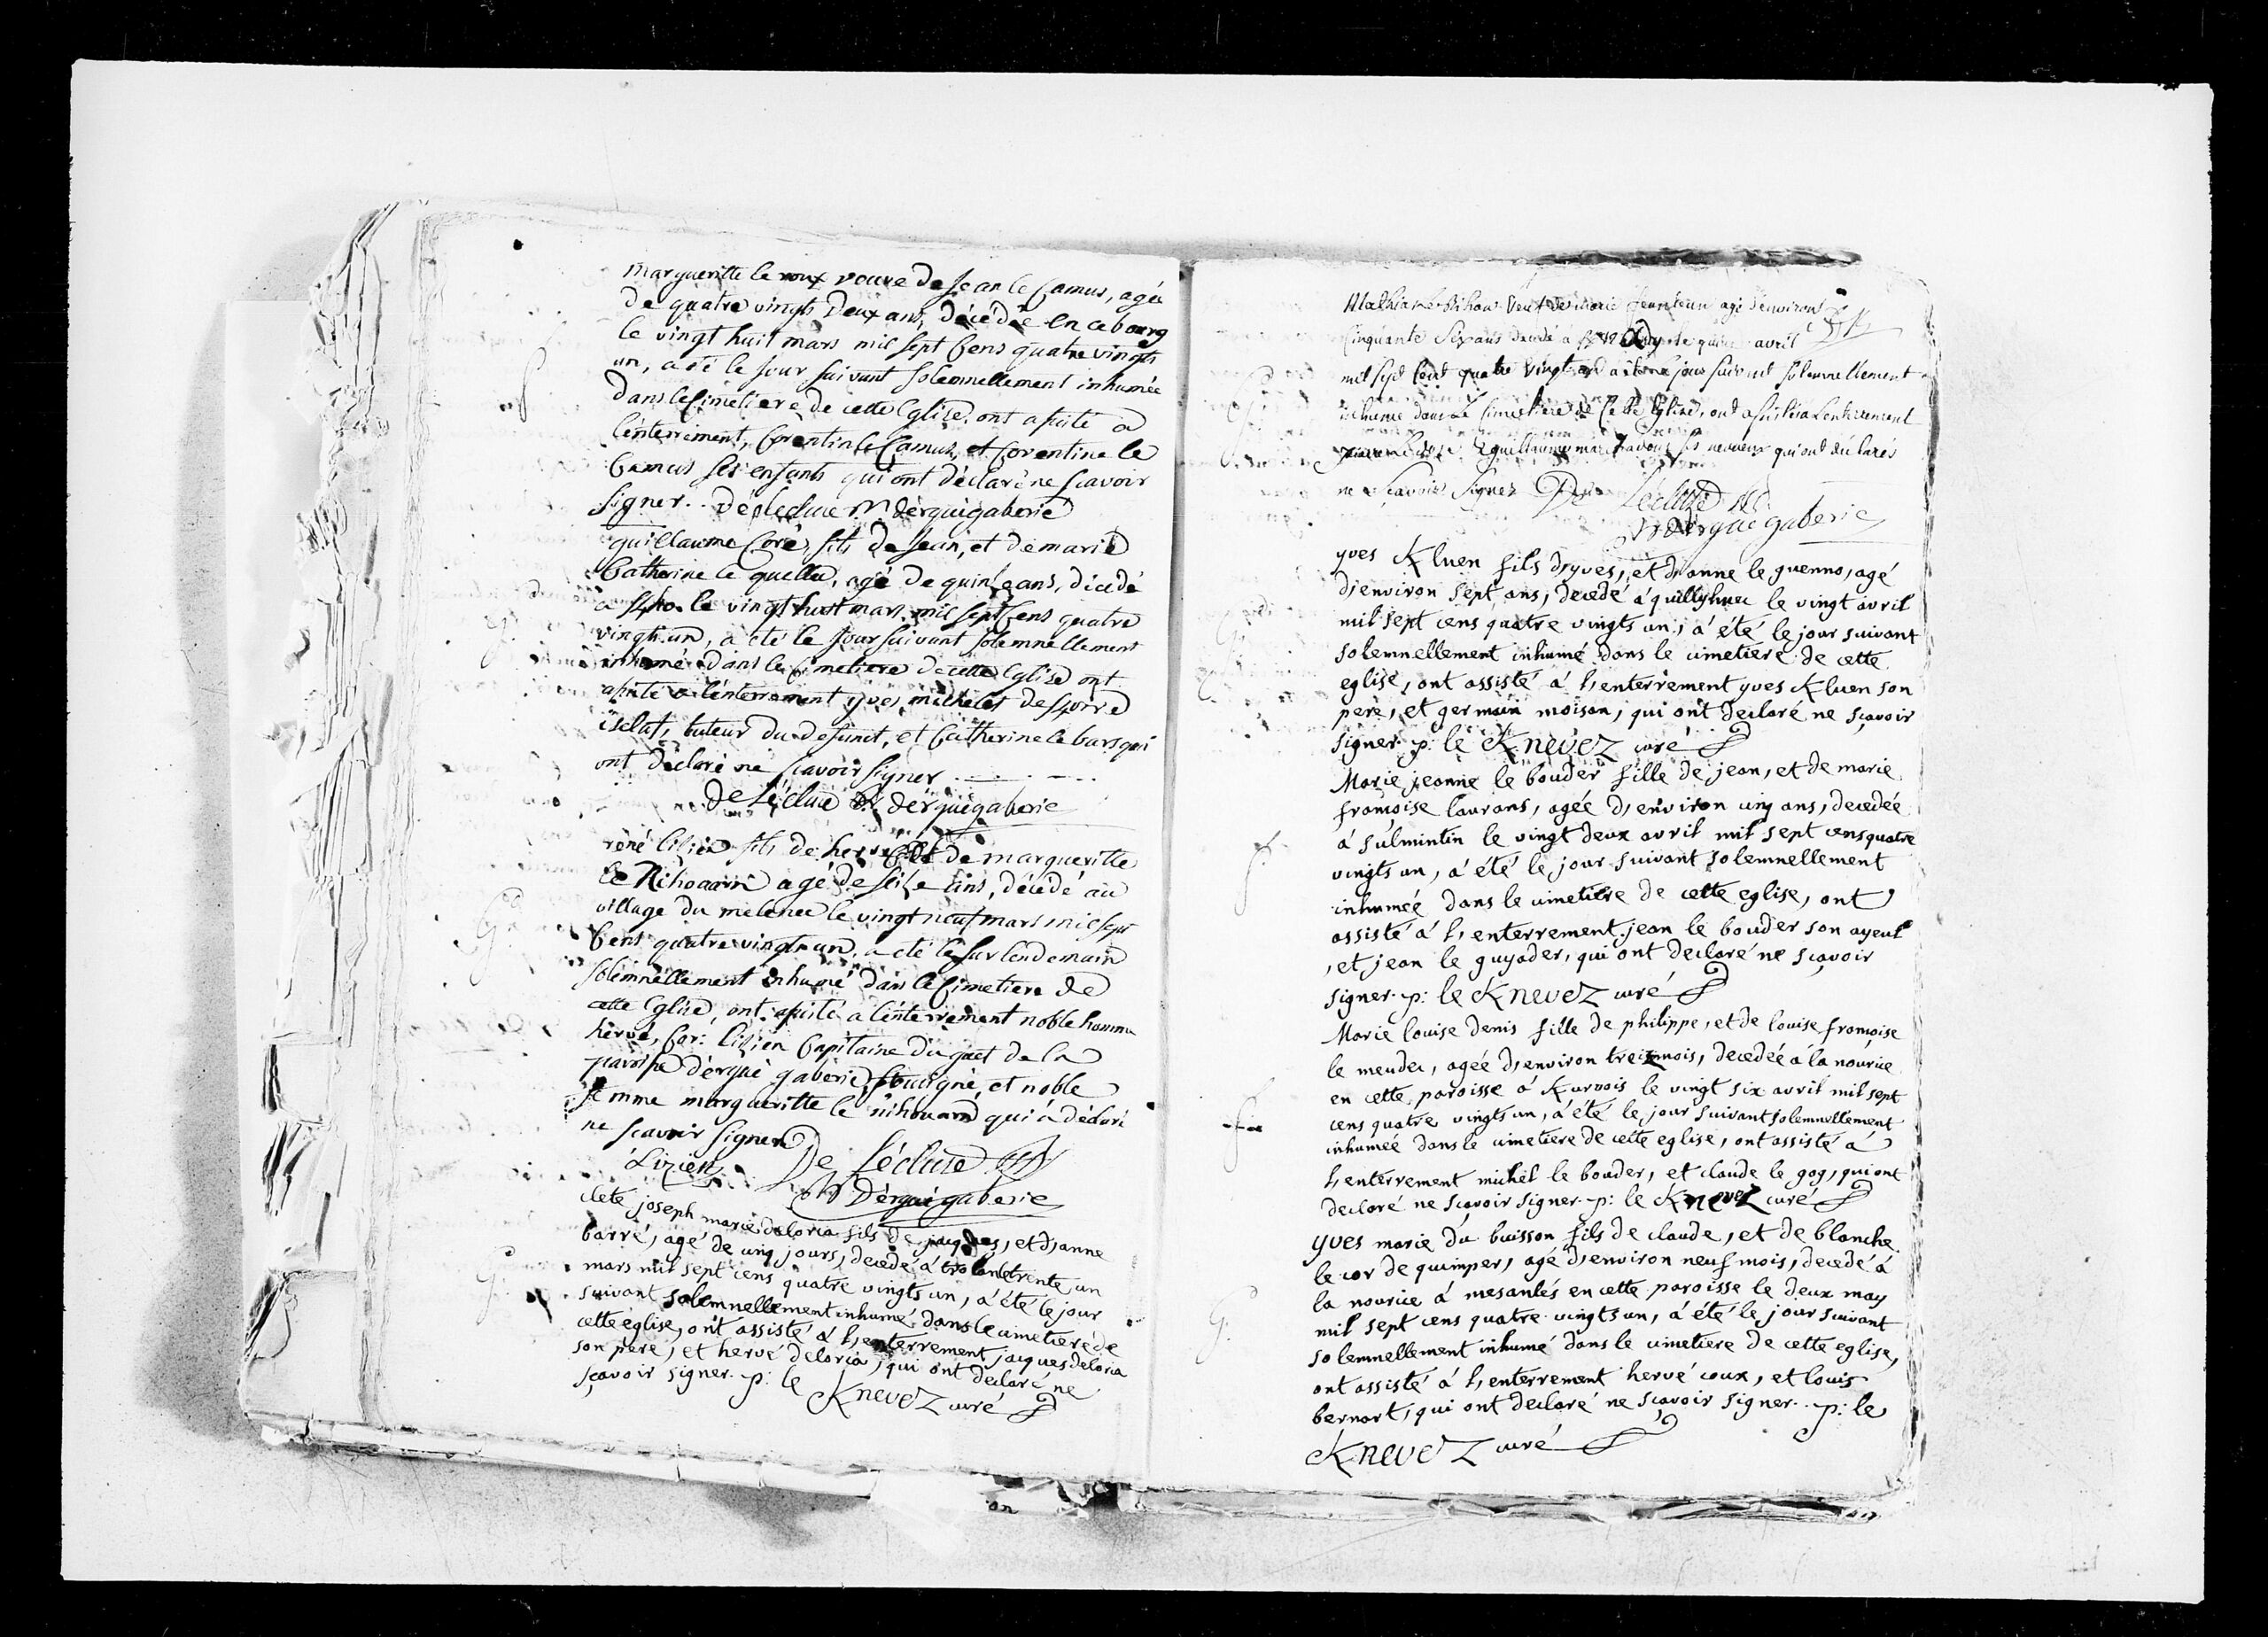 margueritte le roux veuve de Jean le Camus, agée
de quatre vingts deux ans, décédée en ce bourg
le vingt huit mars mil sept Cens quatre vingts
un, a été le jour suivant solemnellement inhumée
dans le Cimetiere de cette Eglise, ont assisté a
l'enterrement, Corentin le Camus, et Corentine le
Camus ses enfants qui ont déclaré ne scavoir
signer.. de lecluse derguégaberic
f
guillaume Coré, fils de Jean, et de marie
Catherine le quelle, agé de quinze ans, décédé
a le vingt huit mars mil sept Cens quatre
vingts un, a été le jour suivant solemnellement
inhumé dans le Cimetiere de cette Eglise ont
assisté a l'enterrement yves
tuteur du defunct, et Catherine le bars qui
ont déclaré ne scavoir signer
De Lécluse derguégaberic
G
réné lizien fils de hervé et de margueritte
le Nihouarn agé de seize ans, décédé au
village du melenec le vingt neuf mars mil sept
Cens quatre vingts un, a été le surlendemain
solemnellement inhumé dans le Cimetiere de
cette Eglise, ont assisté a l'enterrement noble homme
hervé, Cor: lizien Capitaine du guet de la
paroisse d'ergué gaberic, et noble
femme margueritte le nihouarn qui a déclaré
ne scavoir signer
Lizien De Lécluse
Derguégaberic
G
clete joseph marie deloria fils de jacques, et d'anne
barré, agé de cinq jours, decedé á trolan le trente un
mars mil sept cens quatre vingts un, á été le jour
suivant solemnellement inhumé dans le cimetiere de
cette eglise, ont assisté á l'enterrement jacques deloria
son pere, et hervé deloria, qui ont declaré ne
sçavoir signer. p: le
Knevez curé
G
agé d'environ
Cinquante Six ans décédé a le quinze avril
mil sept Cent quatre vingt un a été le jour suivant solemnellement
inhumé dans Le Cimetiere de Cette Eglise, ont assisté a L'enterrement
guillaume ses neveux qui ont déclarés
ne Scavoir Signer De Lécluse
derguegaberic
yves Kluen fils d'yves, et d'anne le guenno, agé
d'environ sept ans, decedé á quillyhuec le vingt avril
mil sept cens quatre vingts un, á été le jour suivant
solemnellement inhumé dans le cimetiere de cette
eglise, ont assisté á l'enterrement yves Kluen son
pere, et germain moison, qui ont declaré ne sçavoir
signer. p: le Knevez curé
Marie jeanne le bouder fille de jean, et de marie
françoise laurans, agée d'environ cinq ans, decedée
á sulmintin le vingt deux avril mil sept cens quatre
vingts un, á été le jour suivant solemnellement
inhumée dans le cimetiere de cette eglise, ont
assisté á l'enterrement jean le bouder son ayeul
, et jean le guyader, qui ont declaré ne sçavoir
signer. p: le Knevez curé
f
Marie louise denis fille de philippe, et de louise françoise
le meudec, agée d'environ treize mois, decedée á la nourice
en cette paroisse á Kurvois le vingt six avril mil sept
cens quatre vingts un, á été le jour suivant solemnellement
inhumée dans le cimetiere de cette eglise, ont assisté á
l'enterrement michel le bouder, et claude le gog, qui ont
declaré ne sçavoir signer. p: le Knevez curé
f
yves marie du buisson fils de claude, et de blanche
le cor de quimper, agé d'environ neuf mois, decedé á
la nourice á mesanlés en cette paroisse le deux may
mil sept cens quatre vingts un, á été le jour suivant
solemnellement inhumé dans le cimetiere de cette eglise,
ont assisté á l'enterrement hervé coux, et louis
bernart, qui ont declaré ne sçavoir signer.. p: le
Knevez curé
G